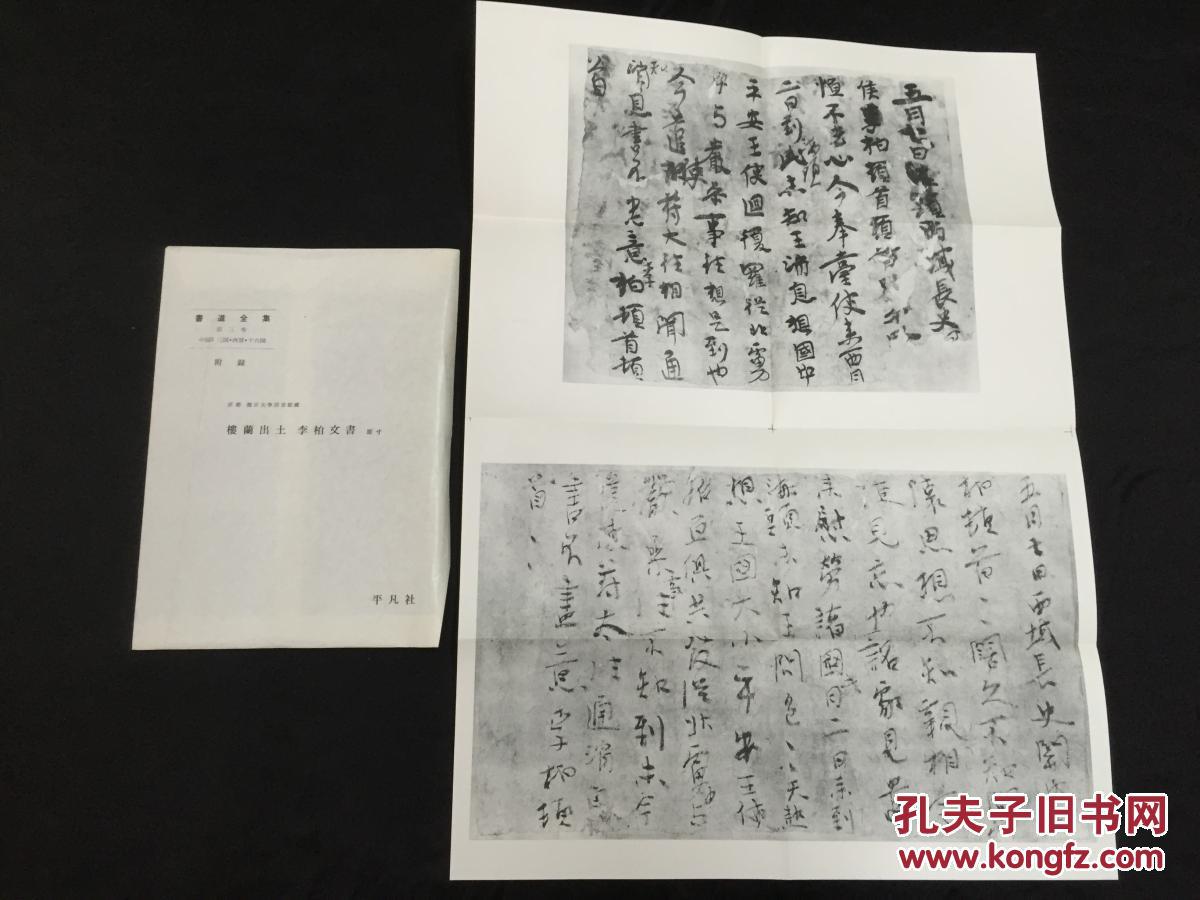 書道全集
第三卷
中國 三國・西晉・十六國
附錄
京都 龍谷大學圖書館藏
樓蘭出土 李柏文書 原寸
平凡社
五月七日海頭西域長史
侯李柏頓首頓首別
恒不去心今奉臺使來西月
二日到此未知王消息想國中
平安王使迴復羅從北虜
中與嚴參事往想是到也
今遣使符大往相聞通
知消息書不悉意李柏頓首頓
首
五月七日西域長史關
柏頓首〻闊久不知
懷思想不知親相
見忘也詔家見
來慰勞諸國月二日來到
海頭未知王問邑〻天熱
想王國大小平安王使
招亘俱共發從北虜中與
嚴參事 不知到未今
符太往通消息
書不盡意李柏頓
首〻
孔夫子旧书网
www.kongfz.com